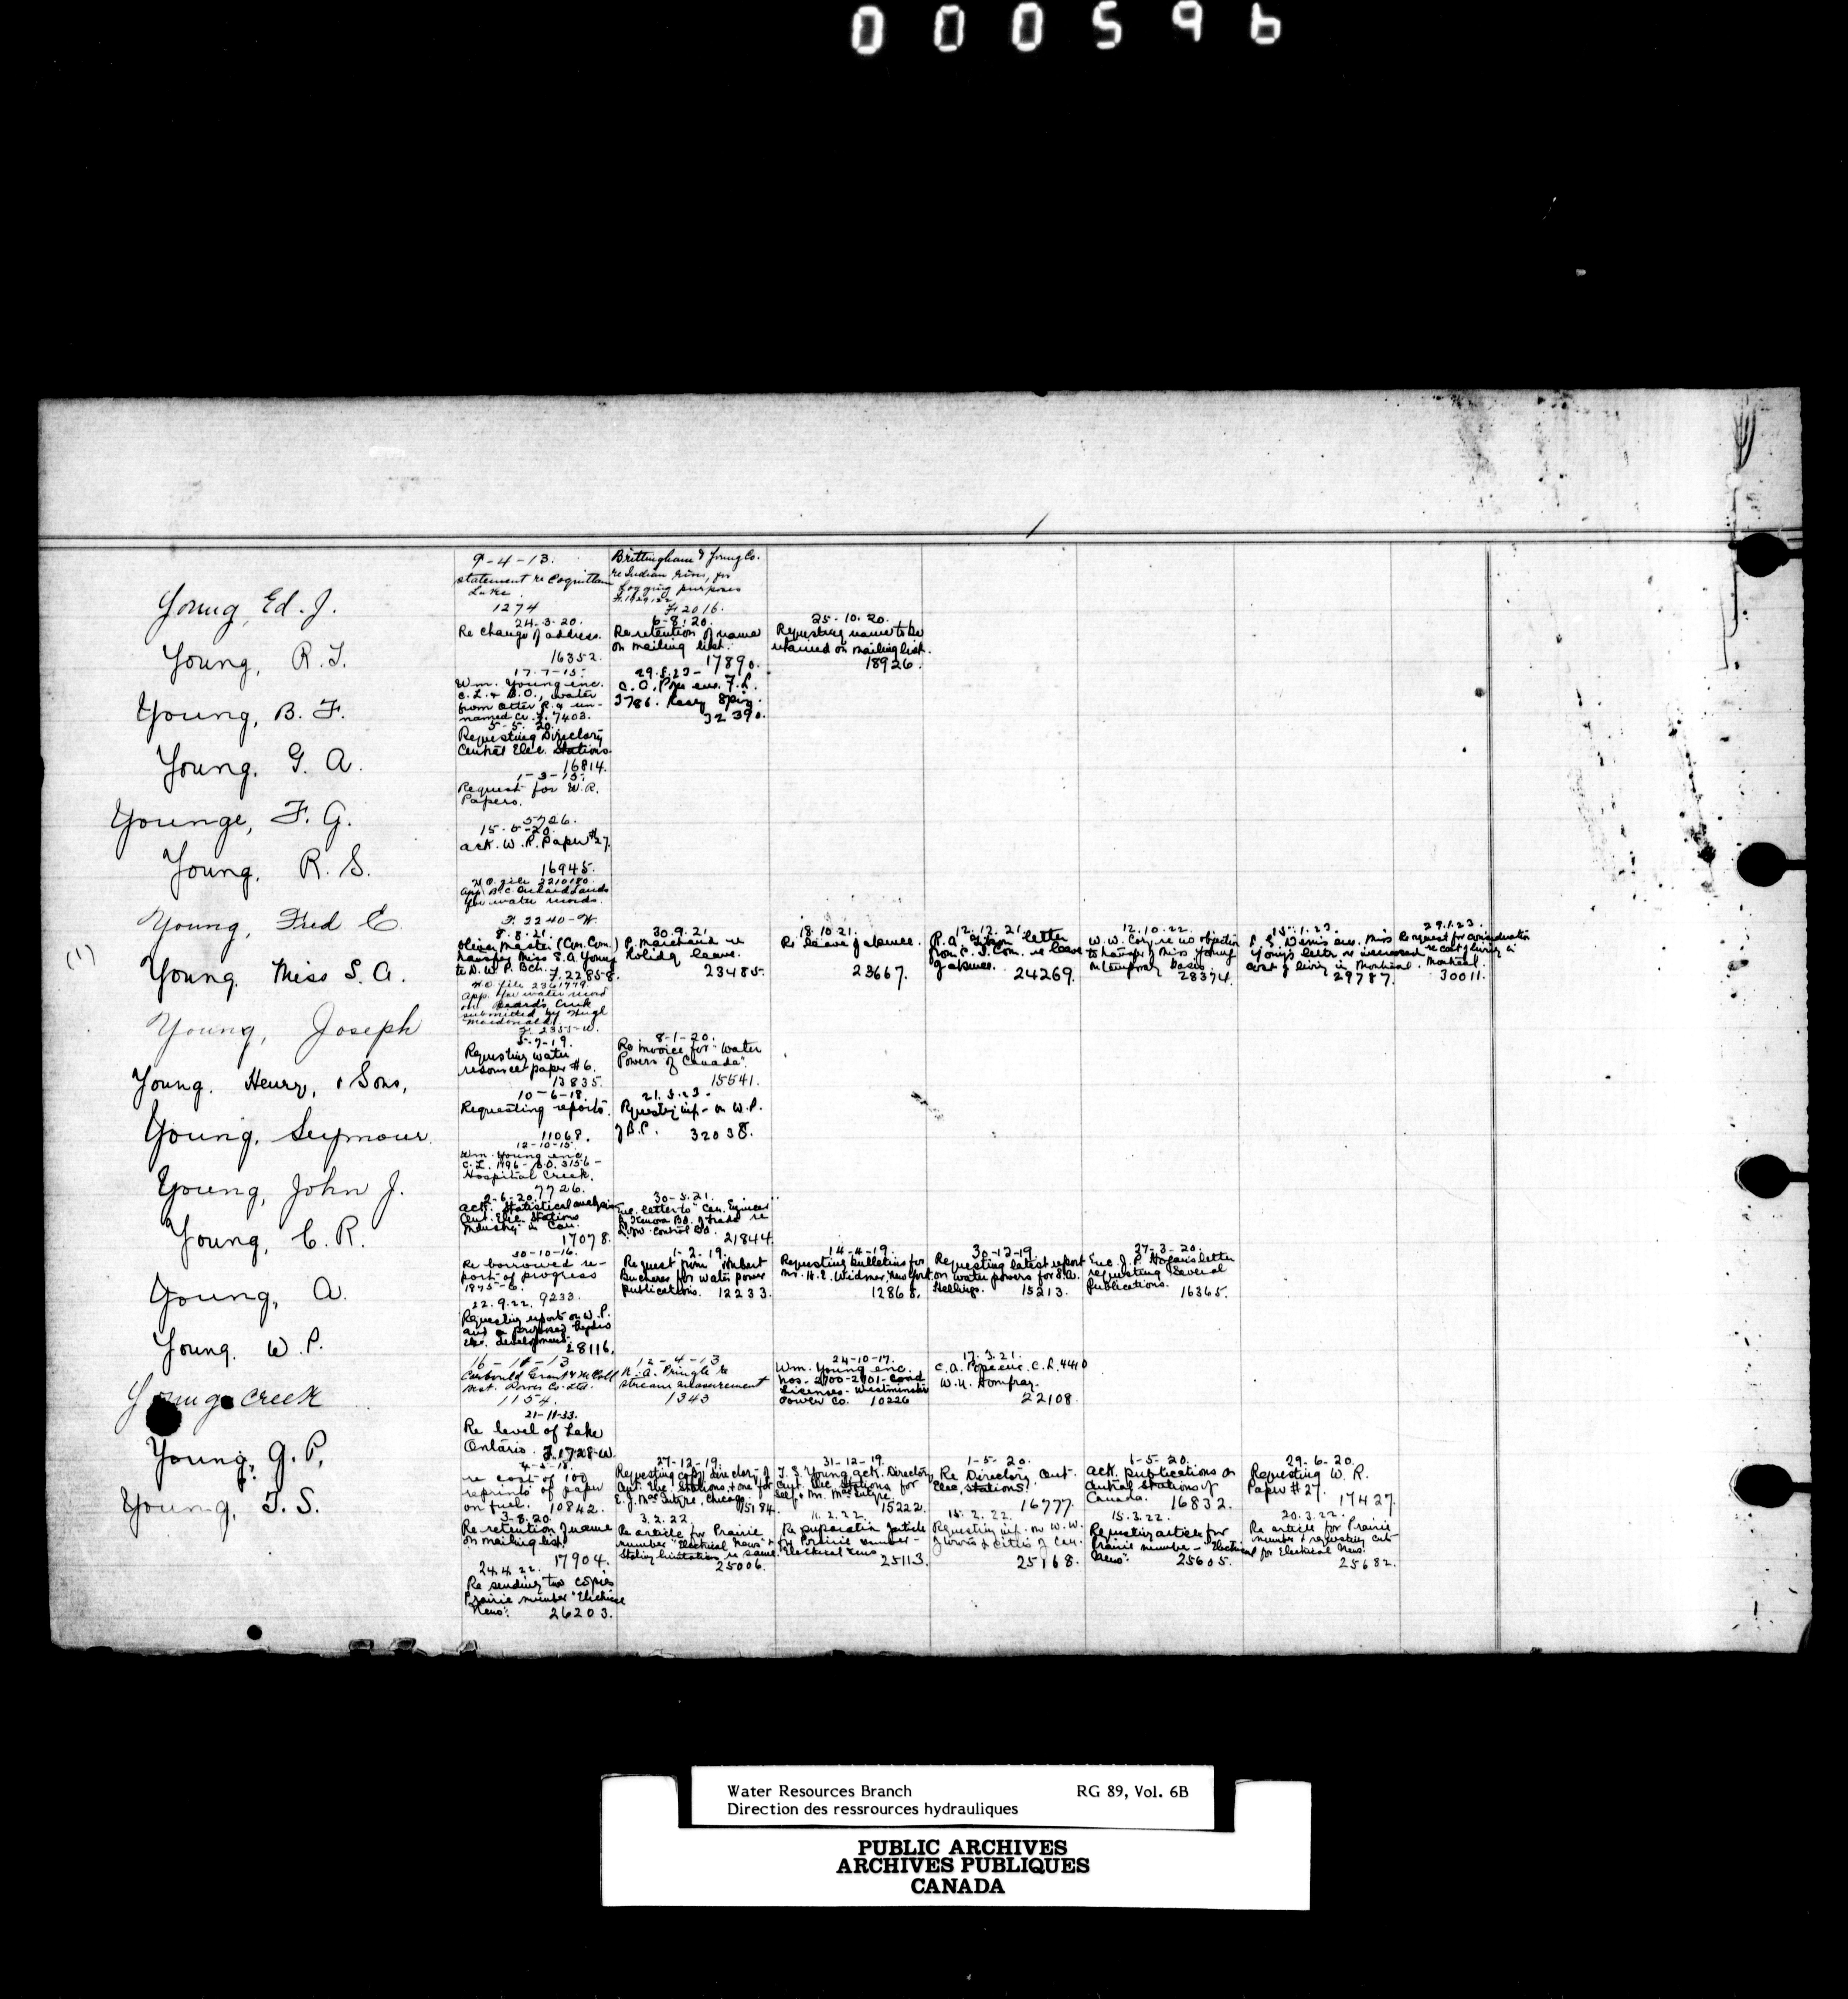 000596
9-4-13.
statement re Coquitlam
Lake.
1274
Brittingham & Young Co.
re Indian River, for
logging purposes
F. 2016.
Young, Ed. J.
24-3-20.
Re change of address.
16352.
6-8-20.
Re retention of name
on mailing list.
17890.
25-10-20.
Requesting name to be
retained on mailing list.
18926.
Young, R. T.
17-7-15.
Wm. Young enc.
C.L. & B.O., water
from Otter R. & un-
named Cr. F. 7403.
C.O.
32390.
Young, B. F.
5-5-20.
Requesting Directory
Central Elec. Stations.
16814.
Young, G. A.
1-3-15.
Request for W.R.
Papers.
5726.
Younge, F. G.
15-5-20.
Ack. W.R. Paper #27
16945.
Young, R. S.
H.O. file 2210180.
App. B.C. Orchard Lands
for water records.
F. 2240-W.
Young, Fred E.
(1)
8.8.21.
Oliver Master (Con. Com.)
transfer Miss S.A. Young
to D.W.P. Bch. F. 22858.
30.9.21.
P. Marchand re
holiday leave.
23485.
18.10.21.
Re leave of absence.
23667.
12.12.21.
R.A. letter
from C.S. Com. re leave
of absence. 24269.
12.10.22.
W.W. Cory, re no objection
to transfer of Miss Young
on temporary basis
28374.
15.1.23.
Denis enc. Miss
Young's letter re increased
cost of living in Montreal.
29787.
29.1.23.
Request for consideration
re cost of living in
Montreal.
30011.
Young, Miss S. A.
H.O. file 2361779
App. for water record
on Beard's Creek
submitted by Hugh
Macdonald
F. 2355-W.
Young, Joseph
5-7-19.
Requesting water
resources paper #6.
13835.
8-1-20.
Re invoice for "Water
Powers of Canada".
15541.
Young, Henry, & Sons,
10-6-18.
Requesting reports.
11068.
21.5.23.
Requesting inf. on W.P.
of B.C. 32038.
Young, Seymour.
12-10-15
Wm. Young enc.
C.L. 1196 - B.O. 3156 -
Hospital Creek.
7726.
Young, John J.
2-6-20.
Ack. Statistical analysis
Cent. Elec. Stations
Industry in Can.
17078.
30-5-21.
Enc. letter to "Can. Engineer"
by Kenora Bd. of Trade re
Control Bd.
21844.
Young, C. R.
30-10-16.
Re borrowed re-
port of progress
1875-6.
9233.
1-2-19.
Request from
Bucherer for water power
publications. 12233.
14-4-19.
Requesting bulletins for
Mr. H.E. Widmer, New York.
12868.
30-12-19.
Requesting latest report
on water powers for S.A.
15213.
27-3-20.
Enc. J.P. Hogan's letter
requesting several
publications.
16365.
Young, A.
22.9.22.
Requesting report on W.P.
and a proposed hydro
elec. development.
28116.
Young, W. P.
16-11-13
Corbould Grant & McColl
West. Power Co. Ltd.
1154.
12-4-13
R.A. Pringle re
stream measurement
1343
24-10-17.
Wm. Young enc.
Nos. 2700-2701-Cond
Licenses - Westminster
Power Co. 10226
17.3.21.
C.A. Pope enc. C.L. 4410
W.H. Homfray.
22108.
Young Creek
21-11-33.
Re level of Lake
Ontario. F. 1728-W.
Young, G. P.
4-5-18.
re cost of 100
reprints of paper
on fuel. 10842.
27-12-19.
Requesting copy directory of
Cent. Elec. Stations, & one for
E.J. MacIntyre, Chicago.
15184.
31-12-19.
T.S. Young ack. Directory
Cent. Elec. Stations for
self & Mr. MacIntyre.
15222.
1-5-20.
Re Directory Cent.
Elec. Stations.
16777.
1-5-20.
Ack. publications on
Central Stations of
Canada. 16832.
29-6-20.
Requesting W.R.
Paper #27. 17427.
Young, T. S.
3-8-20.
Re retention of name
on mailing list.
17904.
3.2.22.
Re article for Prairie
number "Electrical News" &
stating limitations re same.
25006.
11.2.22.
Re preparation of article
for Prairie number -
Electrical News
25113.
15.2.22.
Requesting inf. on W.W.
of towns & cities of Can.
25168.
15.3.22.
Requesting article for
Prairie number - "Electrical
News". 25605.
20.3.22.
Re article for Prairie
number & requesting cut
for Electrical News.
25682.
24.4.22.
Re sending two copies
Prairie number "Electrical
News". 26203.
Water Resources Branch RG 89, Vol. 6B
Direction des ressrources hydrauliques
PUBLIC ARCHIVES
ARCHIVES PUBLIQUES
CANADA